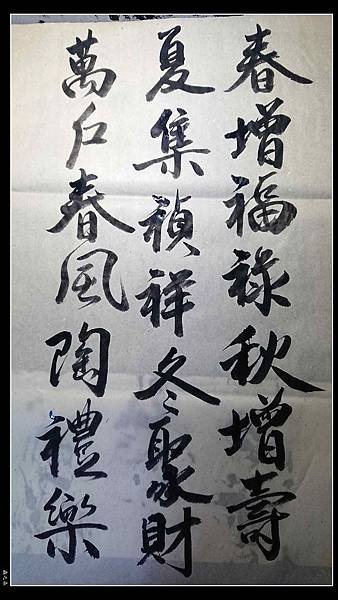 春增福祿秋增壽
夏集禎祥冬聚財
萬戶春風陶禮樂